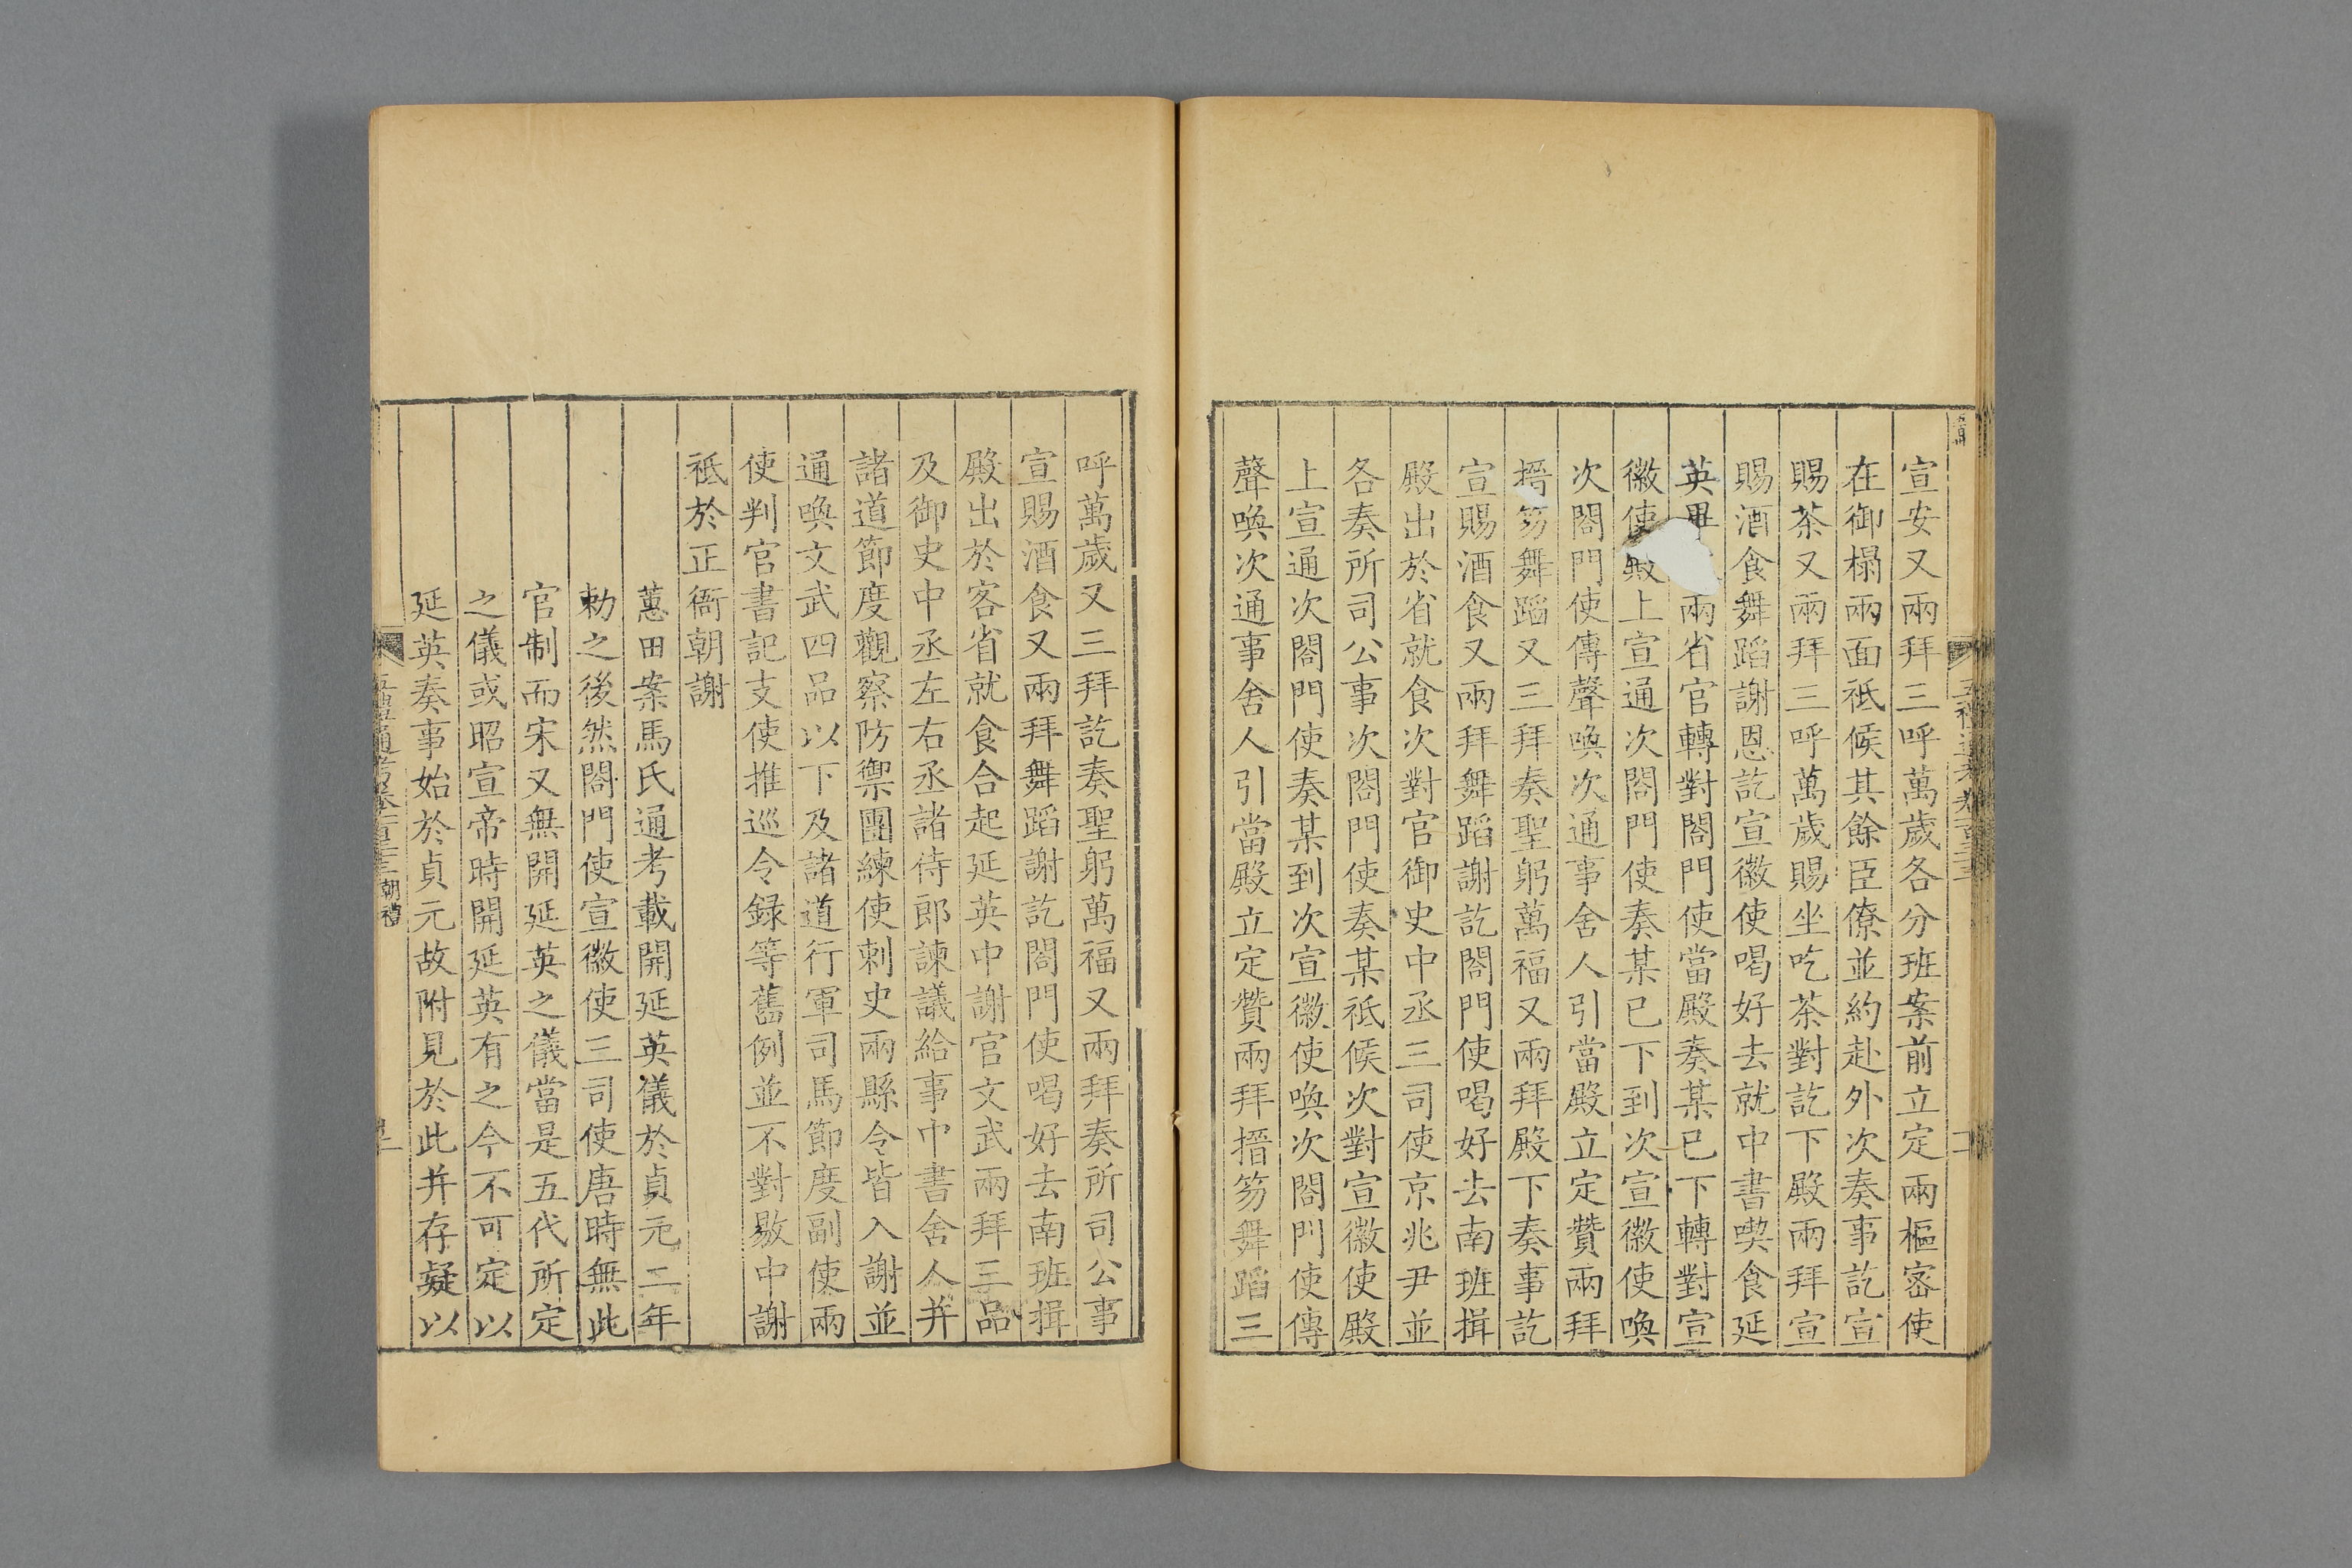 宣安又兩拜三呼萬歲各分班案前立定兩樞宻使
在御榻兩面祗候其餘臣僚並約赴外次奏事訖宣
賜茶又兩拜三呼萬歲賜坐吃茶對訖下殿兩拜宣
賜酒食舞蹈謝恩訖宣徽使喝好去就中書喫食延
英畢兩省官轉對閤門使當殿奏某已下轉對宣
徽使殿上宣通次閤門使奏某已下到次宣徽使喚
次閤門使傳聲喚次通事舍人引當殿立定贊兩拜
搢笏舞蹈又三拜奏聖躬萬福又兩拜殿下奏事訖
宣賜酒食又兩拜舞蹈謝訖閤門使喝好去南班揖
殿出於省就食次對官御史中丞三司使京兆尹並
各奏所司公事次閤門使奏某祗候次對宣徽使殿
上宣通次閤門使奏某到次宣徽使喚次閤門使傳
聲喚次通事舍人引當殿立定贊兩拜搢笏舞蹈三
呼萬歲又三拜訖奏聖躬萬福又兩拜奏所司公事
宣賜酒食又兩拜舞蹈謝訖閤門使喝好去南班揖
殿出於客省就食合起延英中謝官文武兩拜三品
及御史中丞左右丞諸侍郎諫議給事中書舍人并
諸道節度觀察防禦團練使刺史兩縣令皆入謝並
通喚文武四品以下及諸道行軍司馬節度副使兩
使判官書記支使推巡令録等舊例並不對敭中謝
祗於正衙朝謝
蕙田案馬氏通考載開延英儀於貞元二年
勅之後然閤門使宣徽使三司使唐時無此
官制而宋又無開延英之儀當是五代所定
之儀或昭宣帝時開延英有之今不可定以
延英奏事始於貞元故附見於此并存疑以
五禮通考卷一百三十三 朝禮